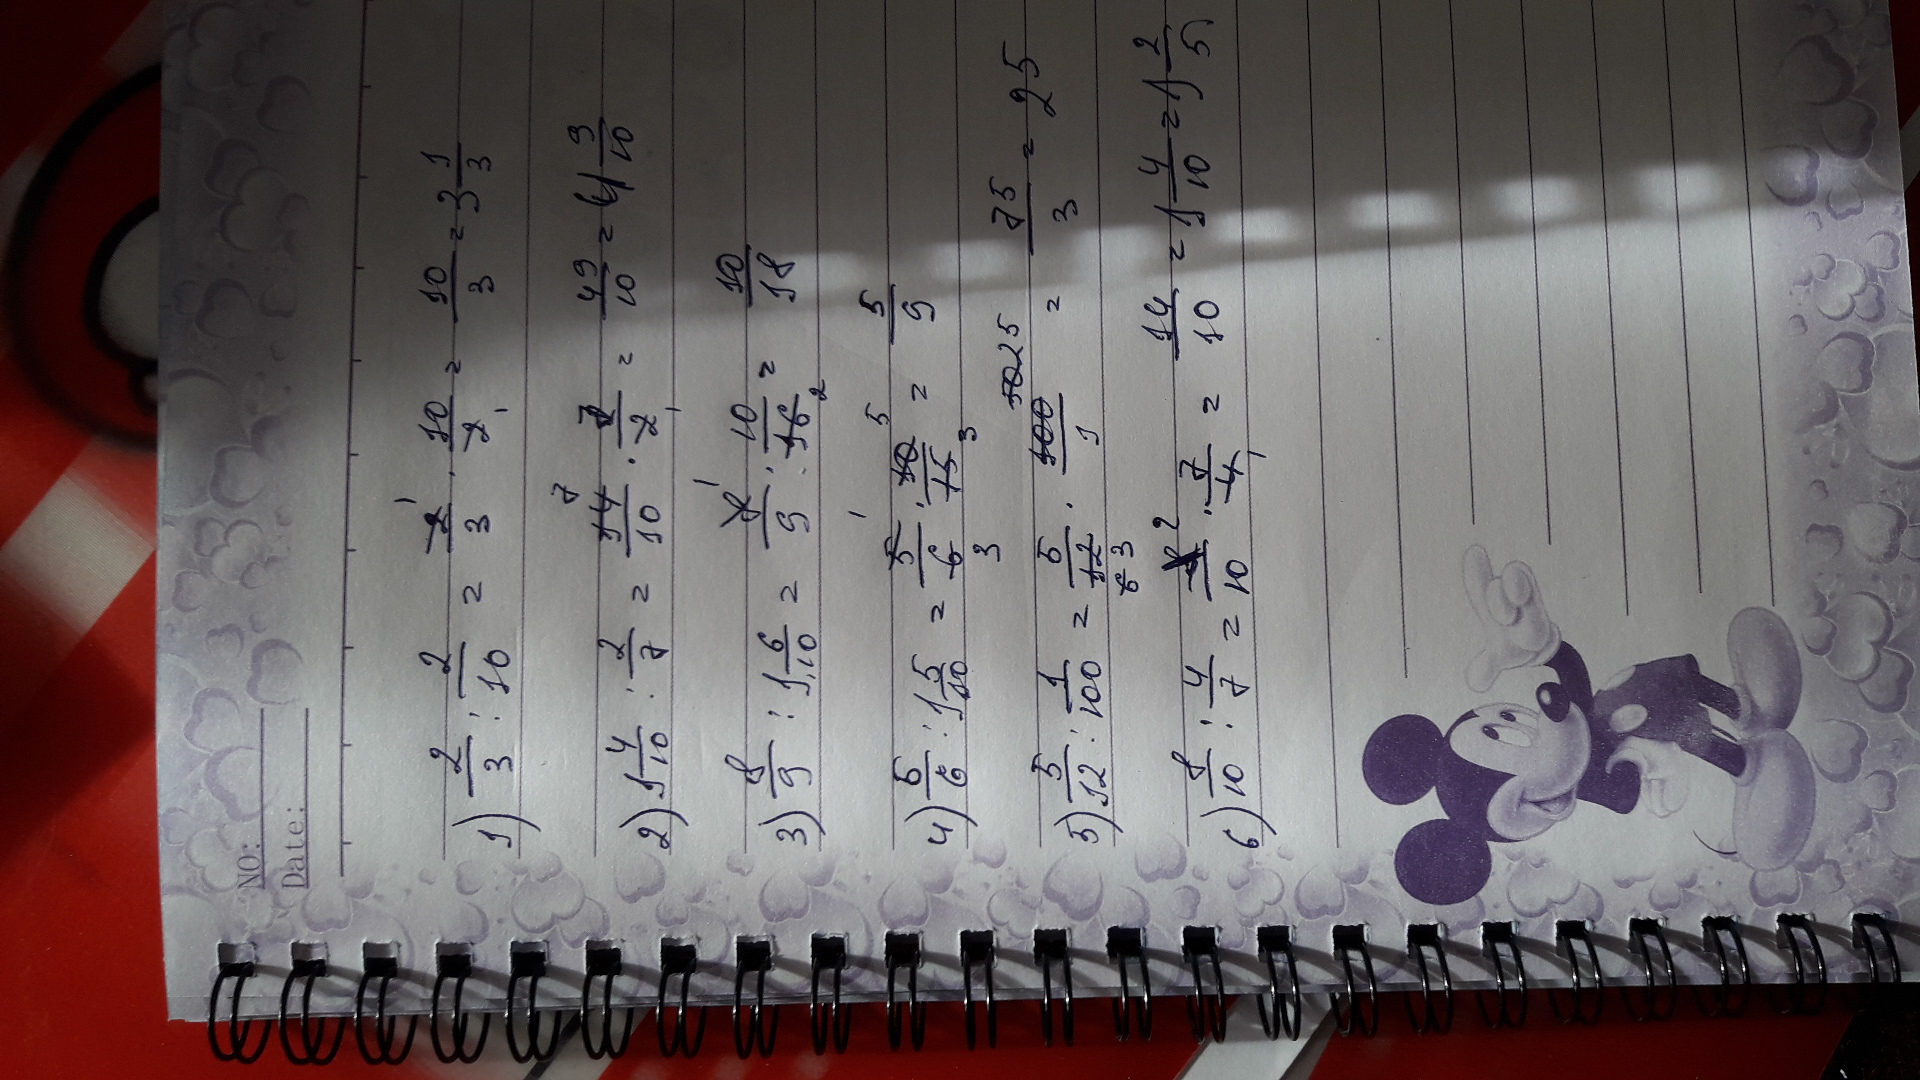 NO:
Date:
1) 2/3 : 2/10 = 2/3 · 10/2 = 10/3 = 3 1/3
2) 1 4/10 : 2/7 = 14/10 · 7/2 = 49/10 = 4 9/10
3) 8/9 : 1 6/10 = 8/9 · 10/16 = 10/18
4) 5/6 : 1 5/10 = 5/6 · 10/15 = 5/9
5) 5/12 : 1/100 = 5/12 · 100/1 = 75/3 = 25
6) 8/10 : 4/7 = 8/10 · 7/4 = 14/10 = 1 4/10 = 1 2/5